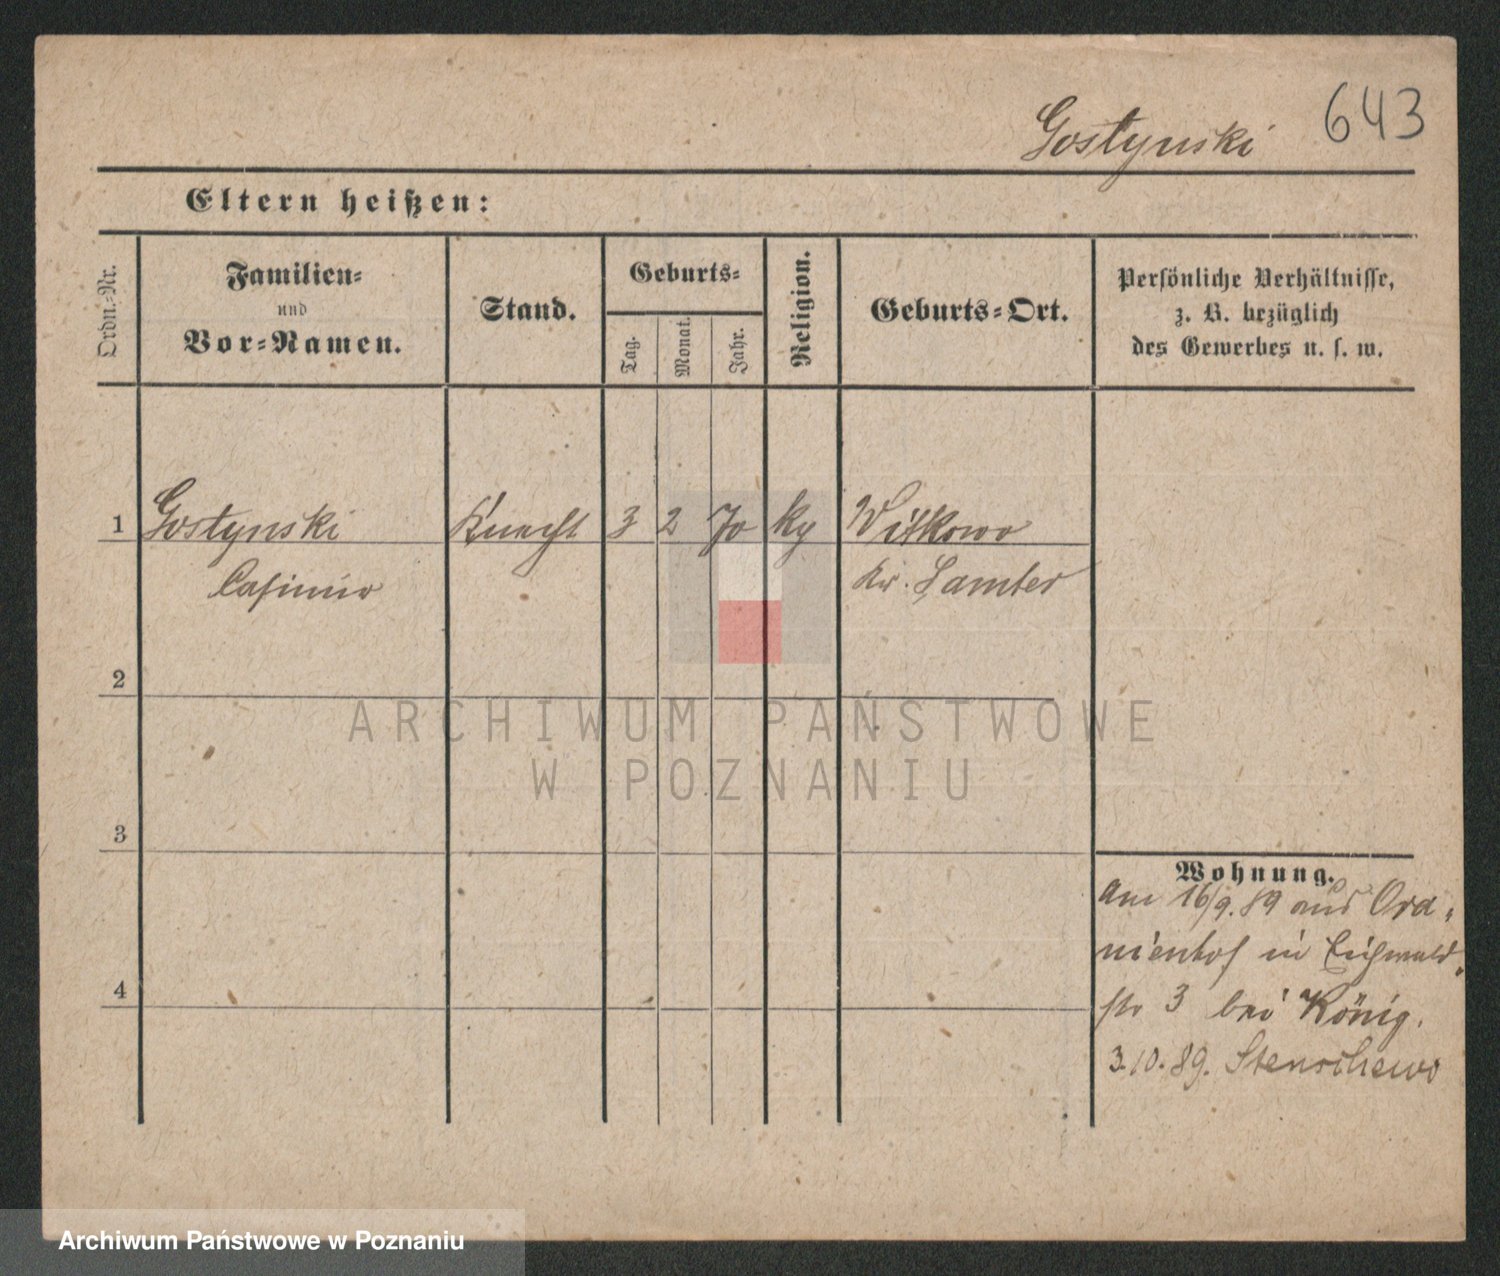 643
Gostynski
Eltern heißen:
Ordn.-Nr.
Familien-
und
Vor-Namen.
Stand.
Geburts-
Tag.
Monat.
Jahr.
Religion.
Geburts-Ort.
Persönliche Verhältnisse,
z. B. bezüglich
des Gewerbes u. s. w.
1 Gostynski Knecht 3 2 70 kg Witkowo
Casimir Kr. Samter
2
ARCHIWUM PAŃSTWOWE
W POZNANIU
3
Wohnung.
Am 16/9. 89 aus Ora-
nienhof in Eichwald-
str 3 bei König.
3.10.89. Stenschewo
4
Archiwum Państwowe w Poznaniu